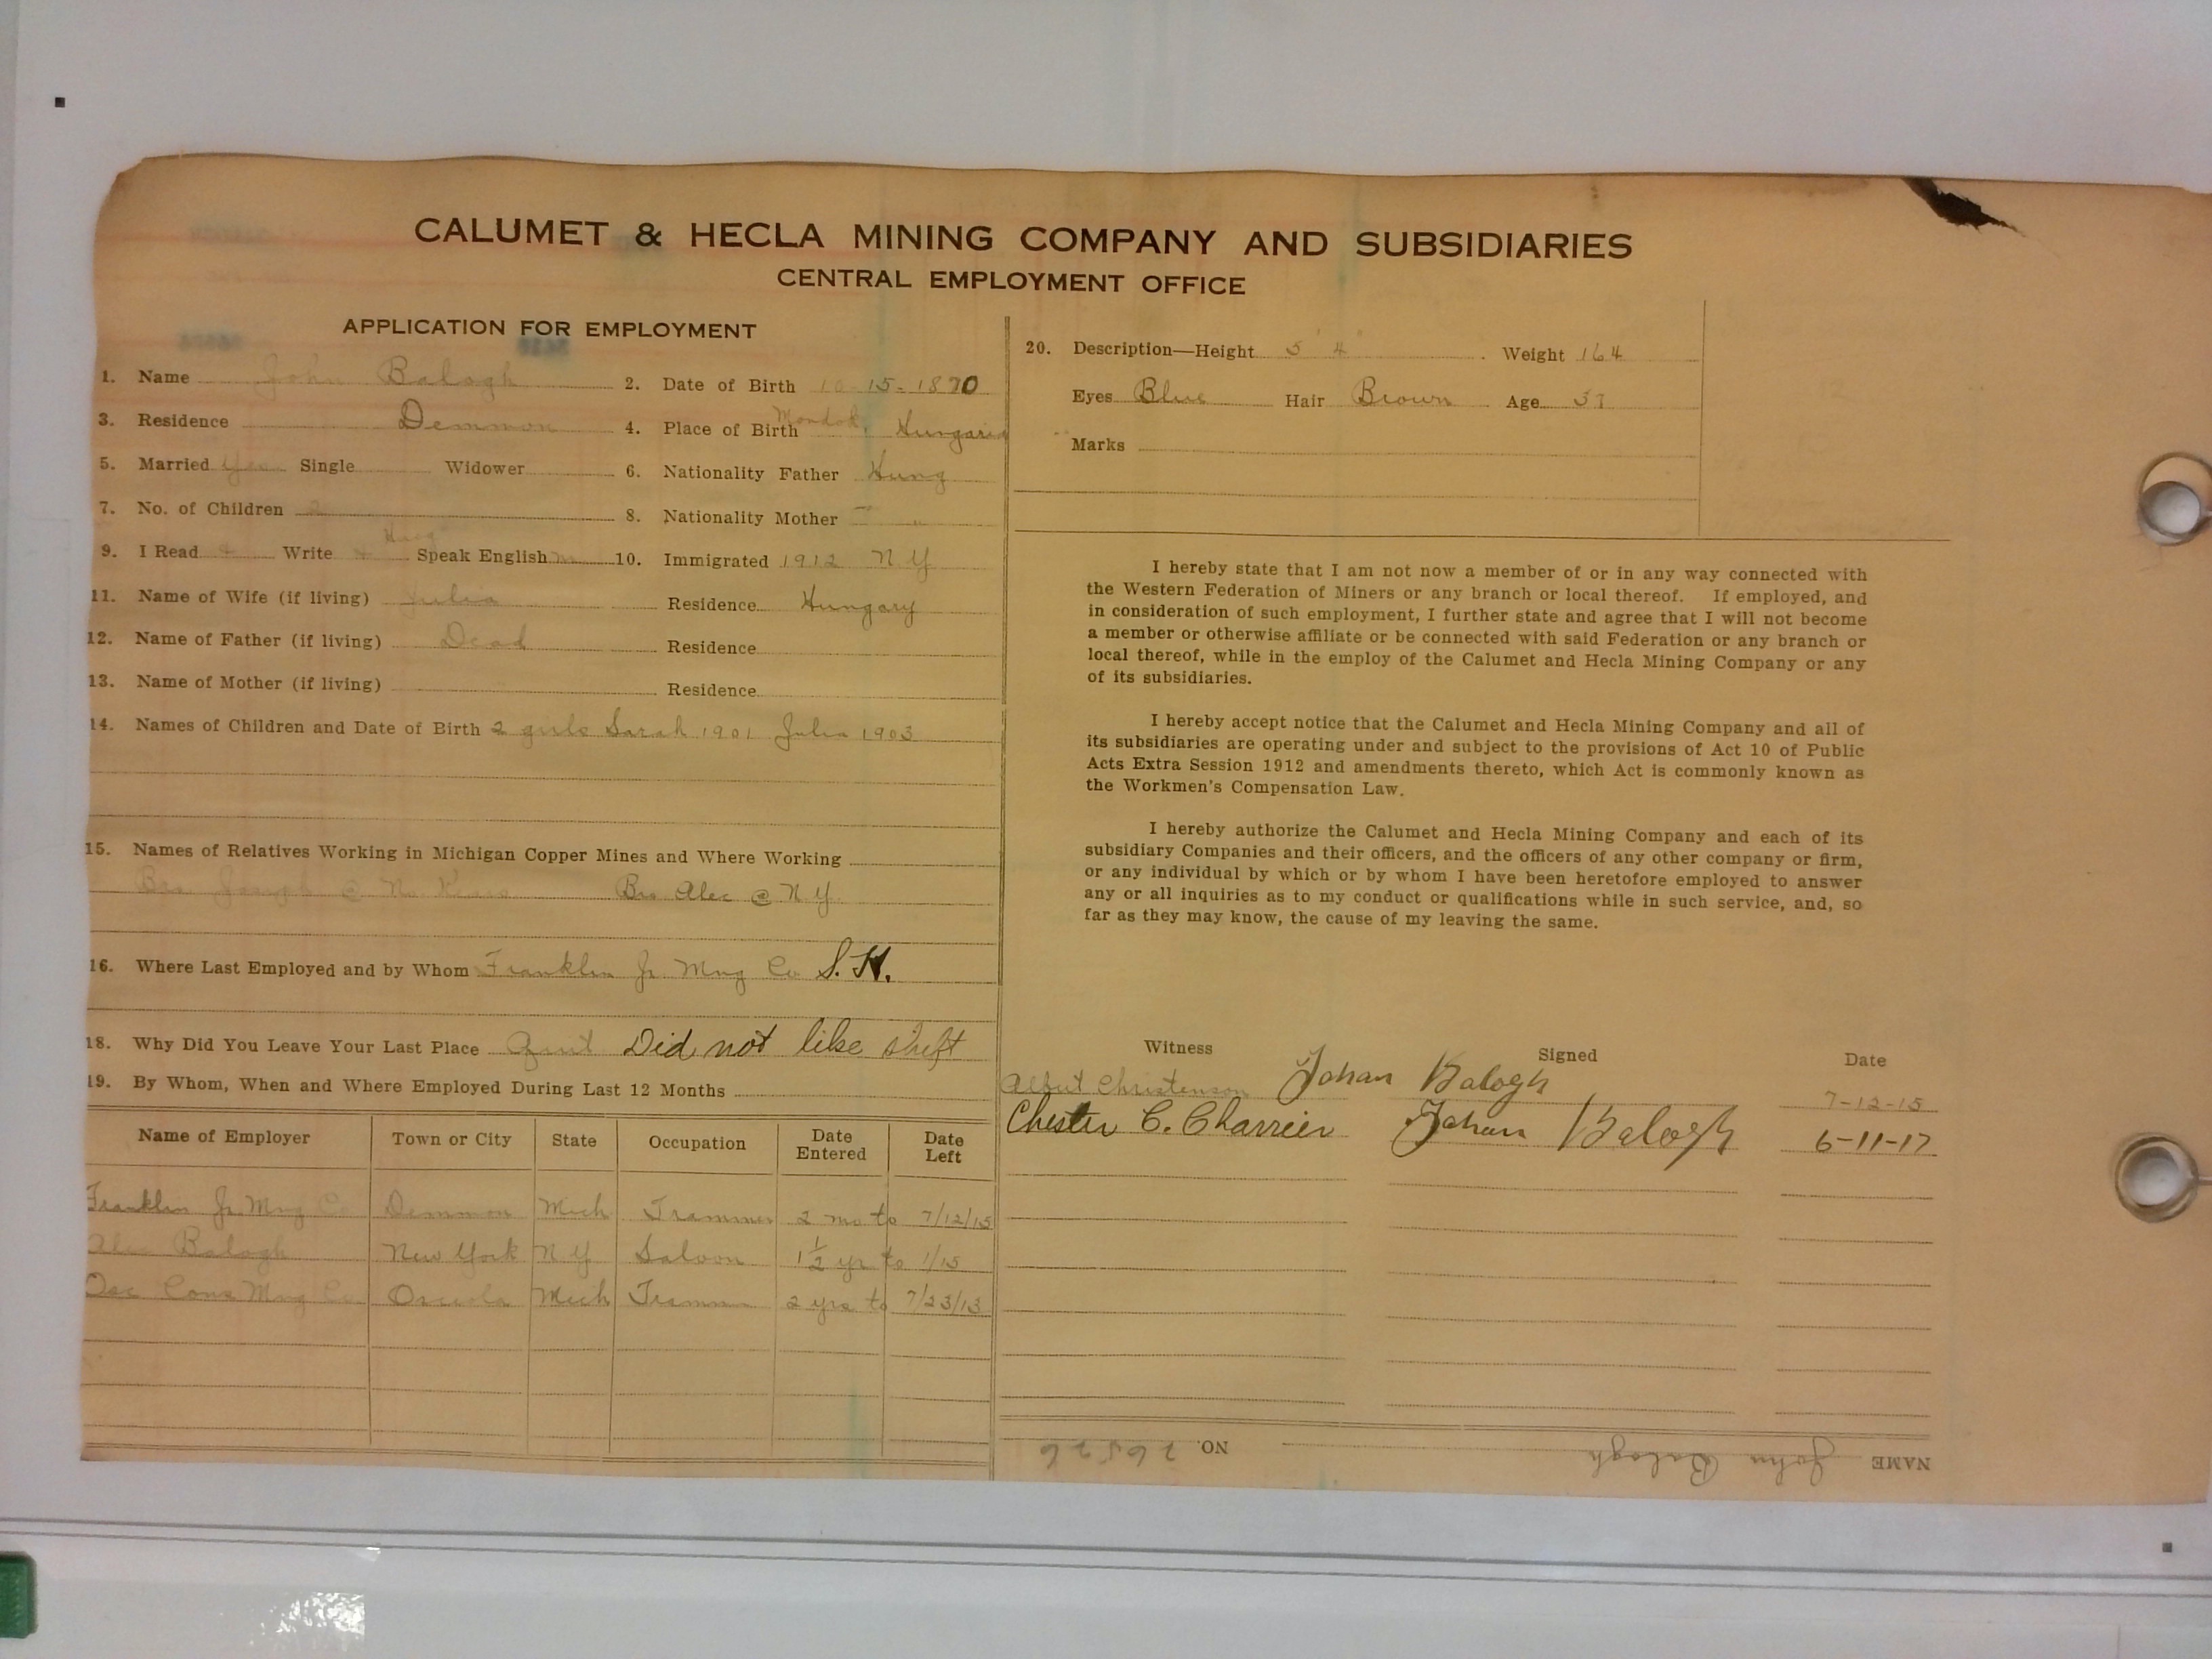 CALUMET & HECLA MINING COMPANY AND SUBSIDIARIES
CENTRAL EMPLOYMENT OFFICE
APPLICATION FOR EMPLOYMENT
1. Name John Balogh 2. Date of Birth 10-15-1870
3. Residence Demmon 4. Place of Birth Mandok, Hungaria
5. Married Yes Single Widower 6. Nationality Father Hung
7. No. of Children 2 8. Nationality Mother " "
9. I Read Write Hung Speak English 10. Immigrated 1912 N Y
11. Name of Wife (if living) Julia Residence Hungary
12. Name of Father (if living) Dead Residence
13. Name of Mother (if living) Residence
14. Names of Children and Date of Birth 2 girls Sarah 1901 Julia 1903
15. Names of Relatives Working in Michigan Copper Mines and Where Working
Bro Joseph @ No Kear Bro Alec @ N Y.
16. Where Last Employed and by Whom Franklin Jr Mng Co S.H.
18. Why Did You Leave Your Last Place Quit Did not like shift
19. By Whom, When and Where Employed During Last 12 Months
Name of Employer Town or City State Occupation Date Entered Date Left
Franklin Jr. Mng Co Demmon Mich Trammer 2 mo to 7/12/15
Alec Balogh New York N Y Saloon 1 1/2 yr to 1/15
Osc Cons Mng Co Osceola Mich Trammer 2 yrs to 7/23/13
20. Description—Height 5 4 Weight 164
Eyes Blue Hair Brown Age 37
Marks
I hereby state that I am not now a member of or in any way connected with
the Western Federation of Miners or any branch or local thereof. If employed, and
in consideration of such employment, I further state and agree that I will not become
a member or otherwise affiliate or be connected with said Federation or any branch or
local thereof, while in the employ of the Calumet and Hecla Mining Company or any
of its subsidiaries.
I hereby accept notice that the Calumet and Hecla Mining Company and all of
its subsidiaries are operating under and subject to the provisions of Act 10 of Public
Acts Extra Session 1912 and amendments thereto, which Act is commonly known as
the Workmen's Compensation Law.
I hereby authorize the Calumet and Hecla Mining Company and each of its
subsidiary Companies and their officers, and the officers of any other company or firm,
or any individual by which or by whom I have been heretofore employed to answer
any or all inquiries as to my conduct or qualifications while in such service, and, so
far as they may know, the cause of my leaving the same.
Witness Signed Date
Albert Christenson Johan Balogh 7-12-15
Chester C. Charrier Johan Balogh 6-11-17
NAME John Balogh NO. 26526